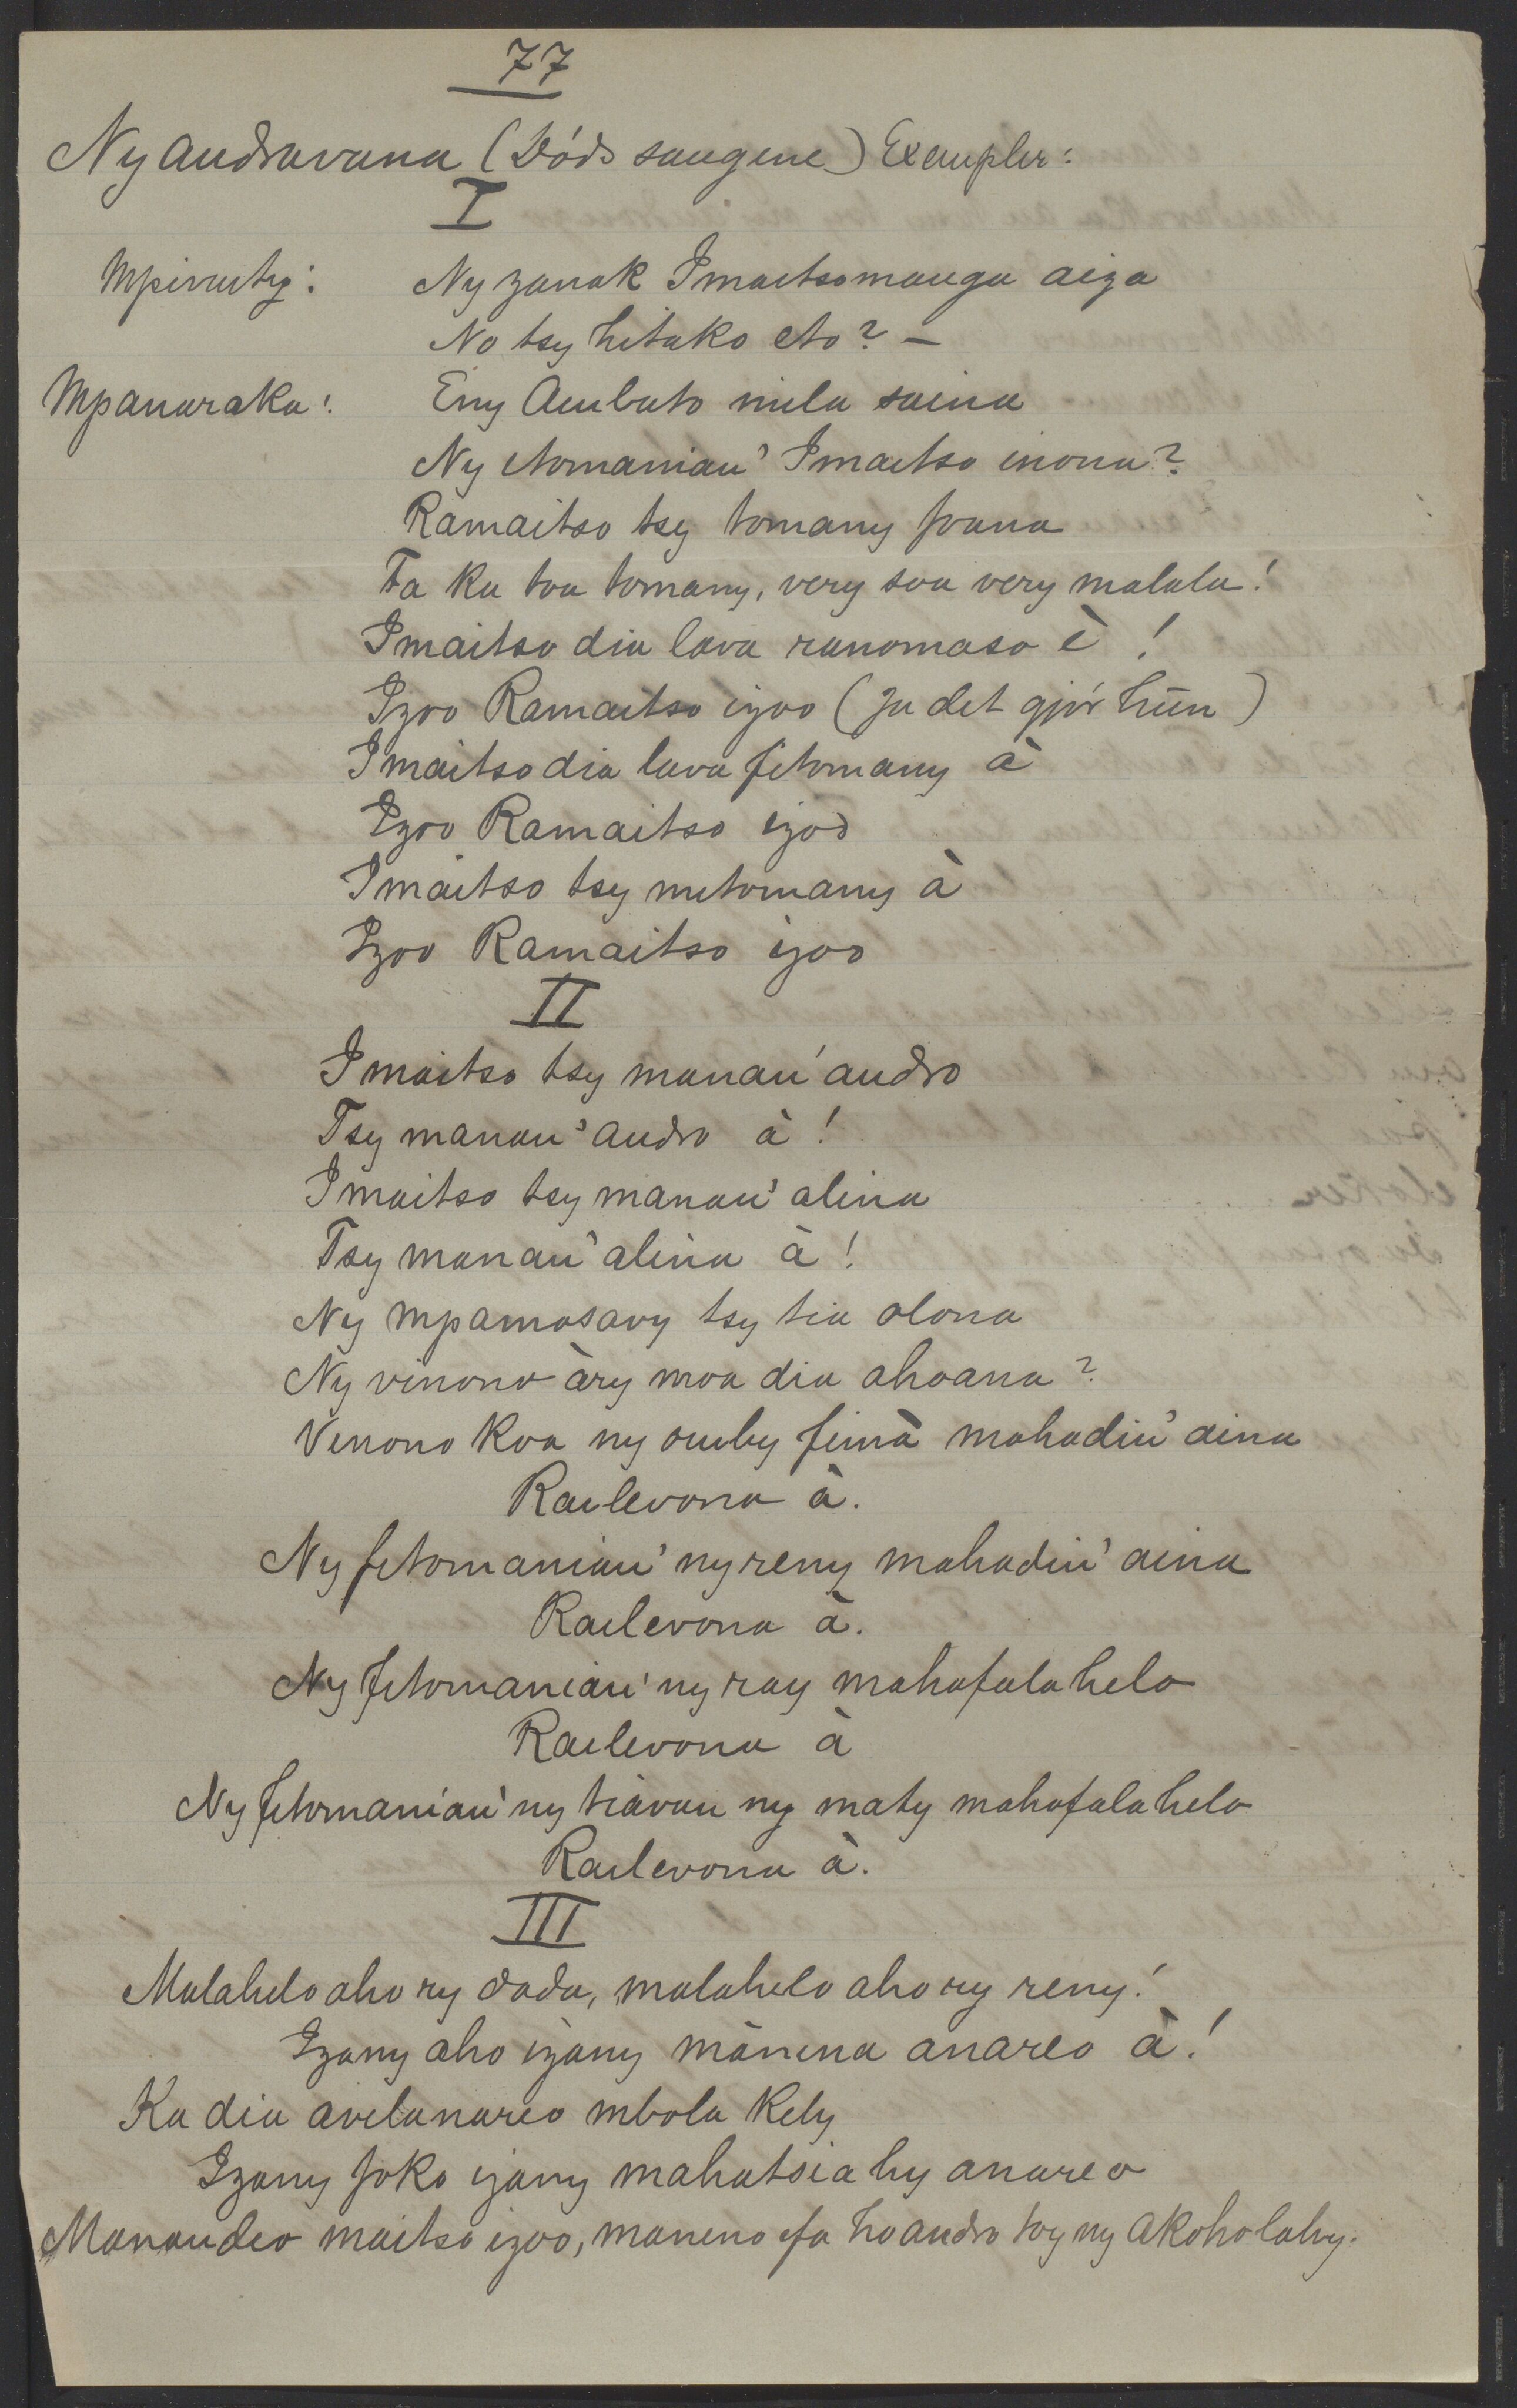 77
Ny andravana (Döds sangene) Exempler:
I
Mpivutry: Ny zanak Imaitsomanga aiza
No tsy hitako eto? –
Mpanaraka: Eny Ambato mila saina
Ny itomanian' Imaitso inona?
Ramaitso tsy tomany foana
Fa ka toa tomany, very soa very malala!
Imaitso dia lava ranomaso è!
Izoo Ramaitso izoo (Ja det gjör hun)
Imaitso dia lava fitomany à
Izoo Ramaitso izoo
Imaitso tsy mitomany à
Izoo Ramaitso izoo
II
Imaitso tsy manan' andro
Tsy manan' andro à!
Imaitso tsy manan' alina
Tsy manan' alina à!
Ny mpamosavy tsy tia olona
Ny vinono àry moa dia ahoana?
Vinono koa ny omby fimà mahadin' aina
Railevona à.
Ny fitomanian' ny reny mahadin' aina
Railevona à.
Ny fitomanian' ny ray mahafalahelo
Railevona à
Ny fitomanian' ny tiavan ny maty mahafalahelo
Railevona à.
III
Malahelo aho ry dada, malahelo aho ry reny!
Izany aho izany mànina anareo à!
Ka dia avelanareo mbola kely
Izany foko izany mahatsiahy anareo
Manandeo maitso izoo, maneno efa ho andro toy ny akoholahy.